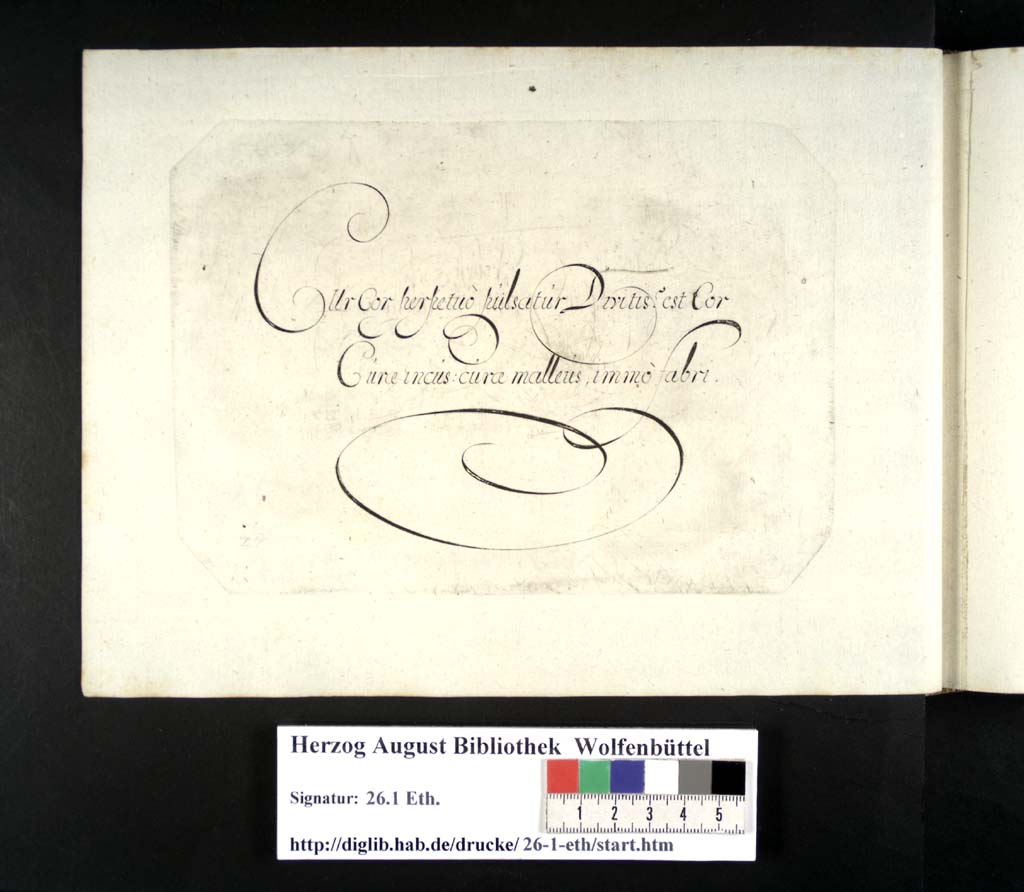 CUr Cor perpetuò pulsatur Divitis? est Cor
Curæ incus: curæ malleus, immò fabri.
Herzog August Bibliothek Wolfenbüttel
Signatur: 26.1 Eth.
1 2 3 4 5
http://diglib.hab.de/drucke/ 26-1-eth/start.htm